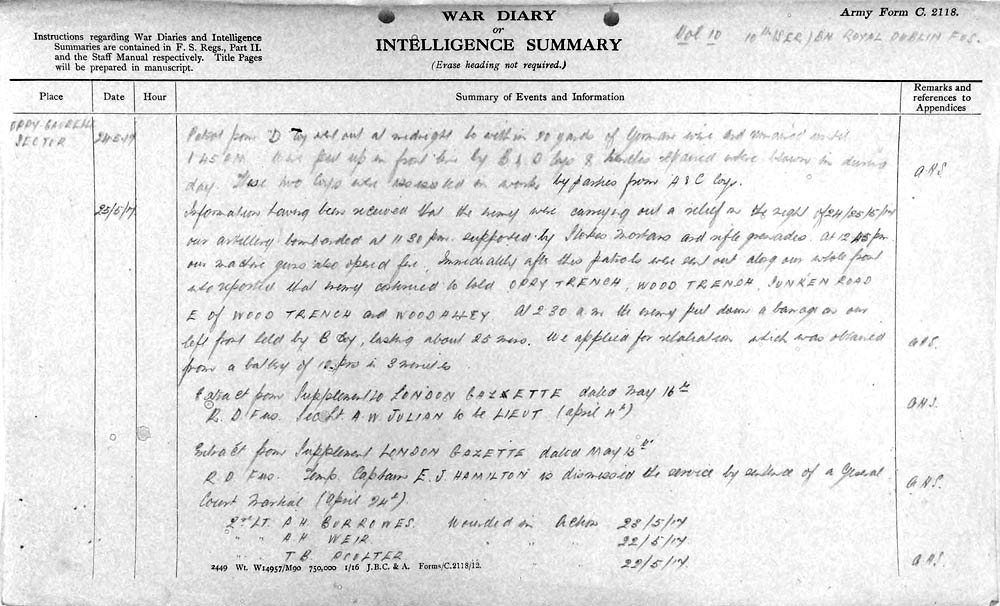 WAR DIARY
or
INTELLIGENCE SUMMARY
(Erase heading not required.)
Army Form C. 2118.
Instructions regarding War Diaries and Intelligence
Summaries are contained in F. S. Regs., Part II.
and the Staff Manual respectively. Title Pages
will be prepared in manuscript.
Vol 10 10th (SER) BN ROYAL DUBLIN FUS.
Place Date Hour Summary of Events and Information Remarks and references to Appendices
OPPY-GAVRELLE SECTOR 24-5-17 Patrol from "D" Coy went out at midnight to within 20 yards of German wire and remained until
1.45 AM. Wire put up on front line by B & D Coys & trenches repaired where blown in during
day. These two Coys were assisted in works by parties from A & C Coys. AHS
25/5/17 Information having been received that the enemy were carrying out a relief on the night of 24/25/5/17
our artillery bombarded at 11 30 pm. supported by Stokes Mortars and rifle grenades. At 12 45 pm
our machine guns also opened fire. Immediately after this patrols were sent out along our whole front
who reported that enemy continued to hold OPPY TRENCH, WOOD TRENCH, SUNKEN ROAD
E of WOOD TRENCH and WOOD ALLEY. At 2 30 a.m. the enemy put down a barrage on our
left front held by B Coy, lasting about 25 mins. We applied for retaliation which was obtained AHS.
from a battery of 18 prs in 3 minutes
Extract from Supplement to LONDON GAZETTE dated May 16th
R. D. Fus. Sec Lt A. W. JULIAN to be LIEUT (April 4th) AHS.
Extract from Supplement LONDON GAZETTE dated MAY 16th
R D Fus. Temp. Captain E. J. HAMILTON is dismissed the service by sentence of a General AHS.
Court Martial (April 24th).
2nd LT. A. H. BURROWES. Wounded in Action 23/5/17
" " A H WEIR " " 22/5/17
" " T B " " 22/5/17. AHS.
2449 Wt. W14957/M90 750,000 1/16 J.B.C. & A. Forms/C.2118/12.